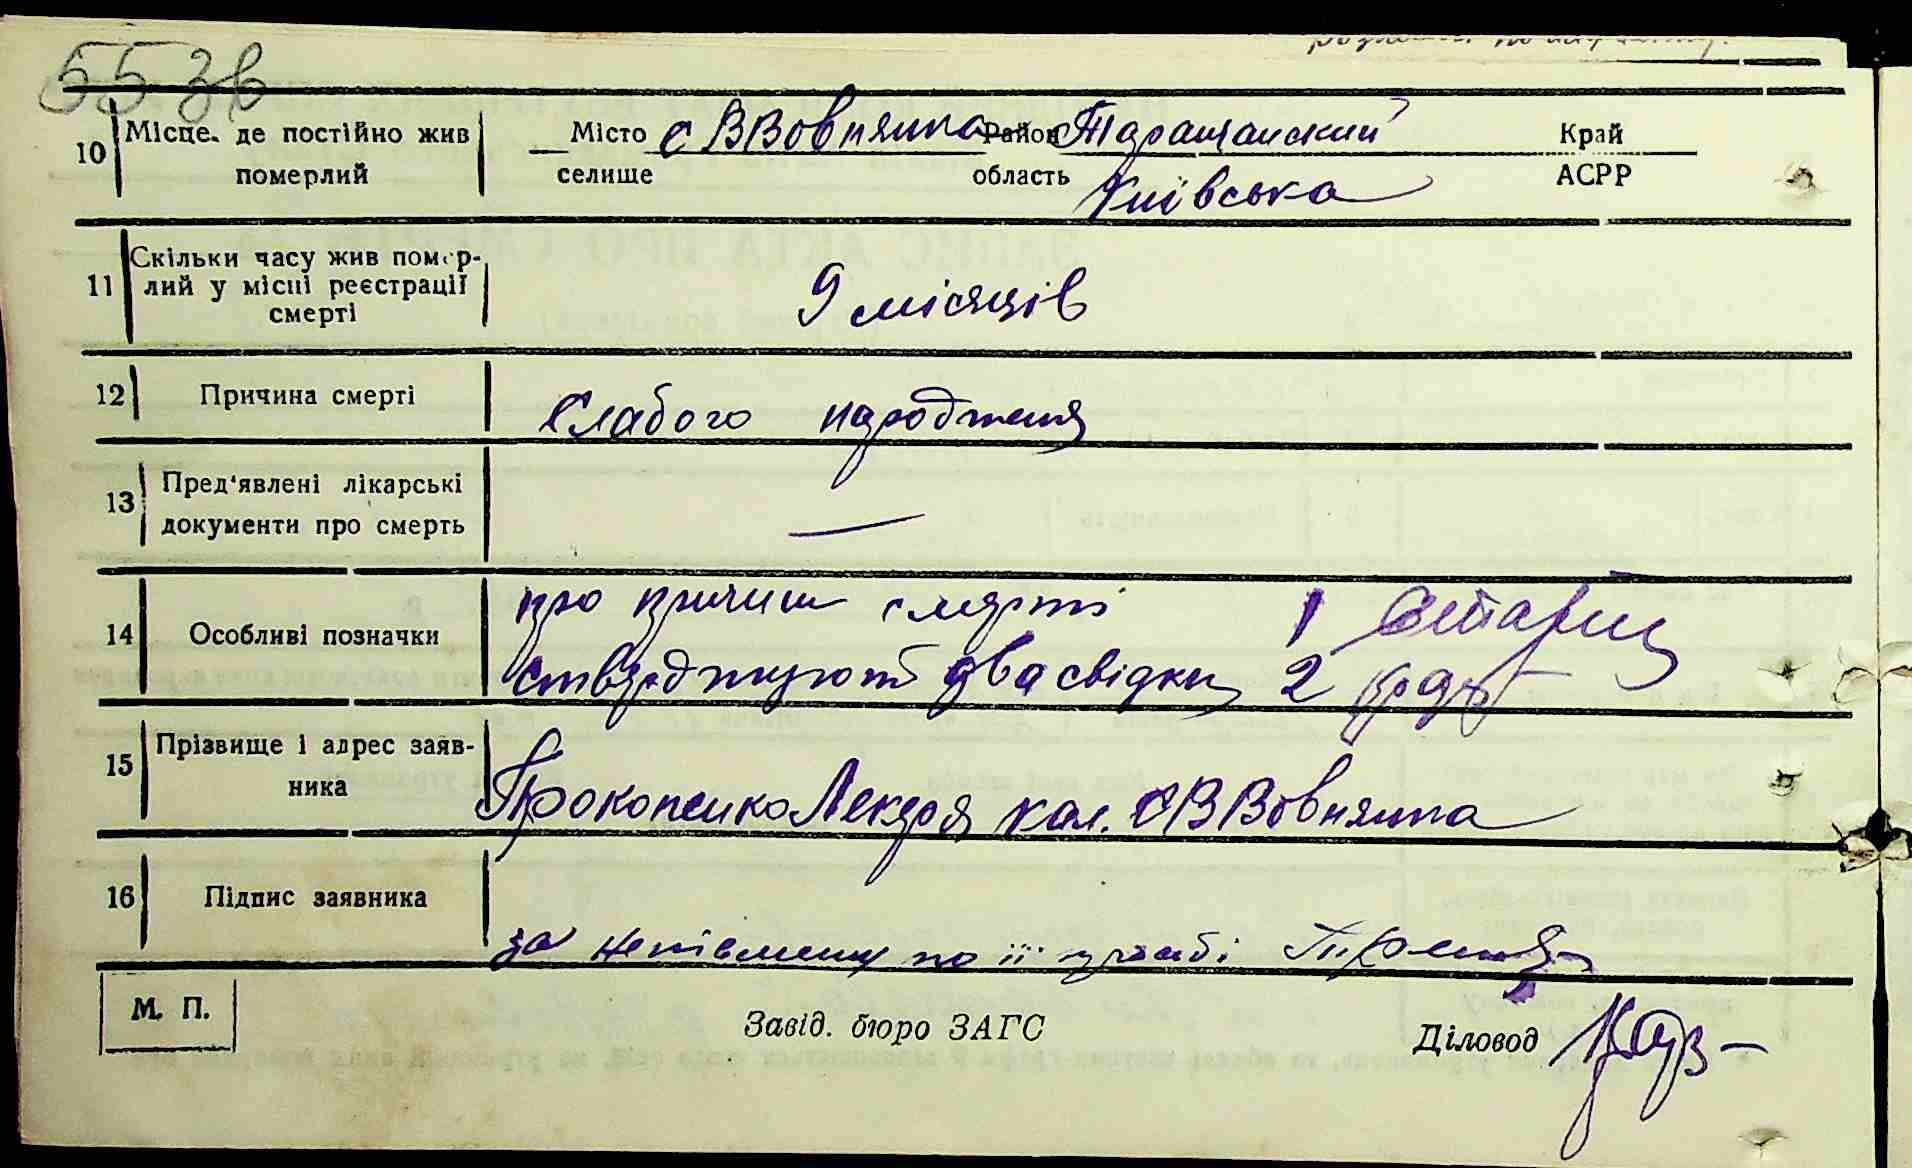 55 зв
10 Місце, де постійно жив померлий Місто селище с ВВовнянка Район область Таращанский Київська Край АСРР
11 Скільки часу жив помер-
лий у місці реєстрації
смерті 9 місяців
12 Причина смерті Слабого народження
13 Пред'явлені лікарські
документи про смерть —
14 Особливі позначки про причини смерті 1
стверджують два свідки 2
15 Прізвище і адрес заяв-
ника Прокопенко кол. с ВВовнянка
16 Підпис заявника за неписьмену по її
М. П. Завід. бюро ЗАГС Діловод